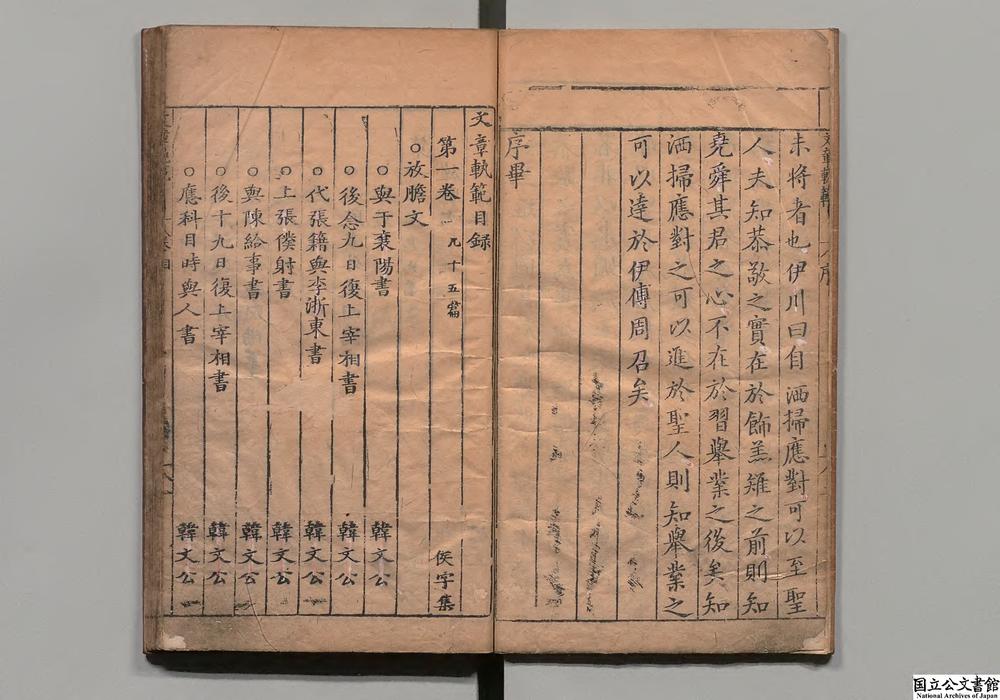 未將者也伊川曰自洒掃應對可以至聖
人夫知恭敬之實在於飾羔雉之前則知
堯舜其君之心不在於習舉業之後矣知
洒掃應對之可以進於聖人則知舉業之
可以達於伊傅周召矣
序畢
文章軌範目録
第一卷 凡十五篇 侯字集
○放膽文
○與于襄陽書 韓文公
○後念九日復上宰相書 韓文公
○代張籍與李浙東書 韓文公
○上張僕射書 韓文公
○與陳給事書 韓文公
○後十九日復上宰相書 韓文公
○應科目時與人書 韓文公
国立公文書館
National Archives of Japan